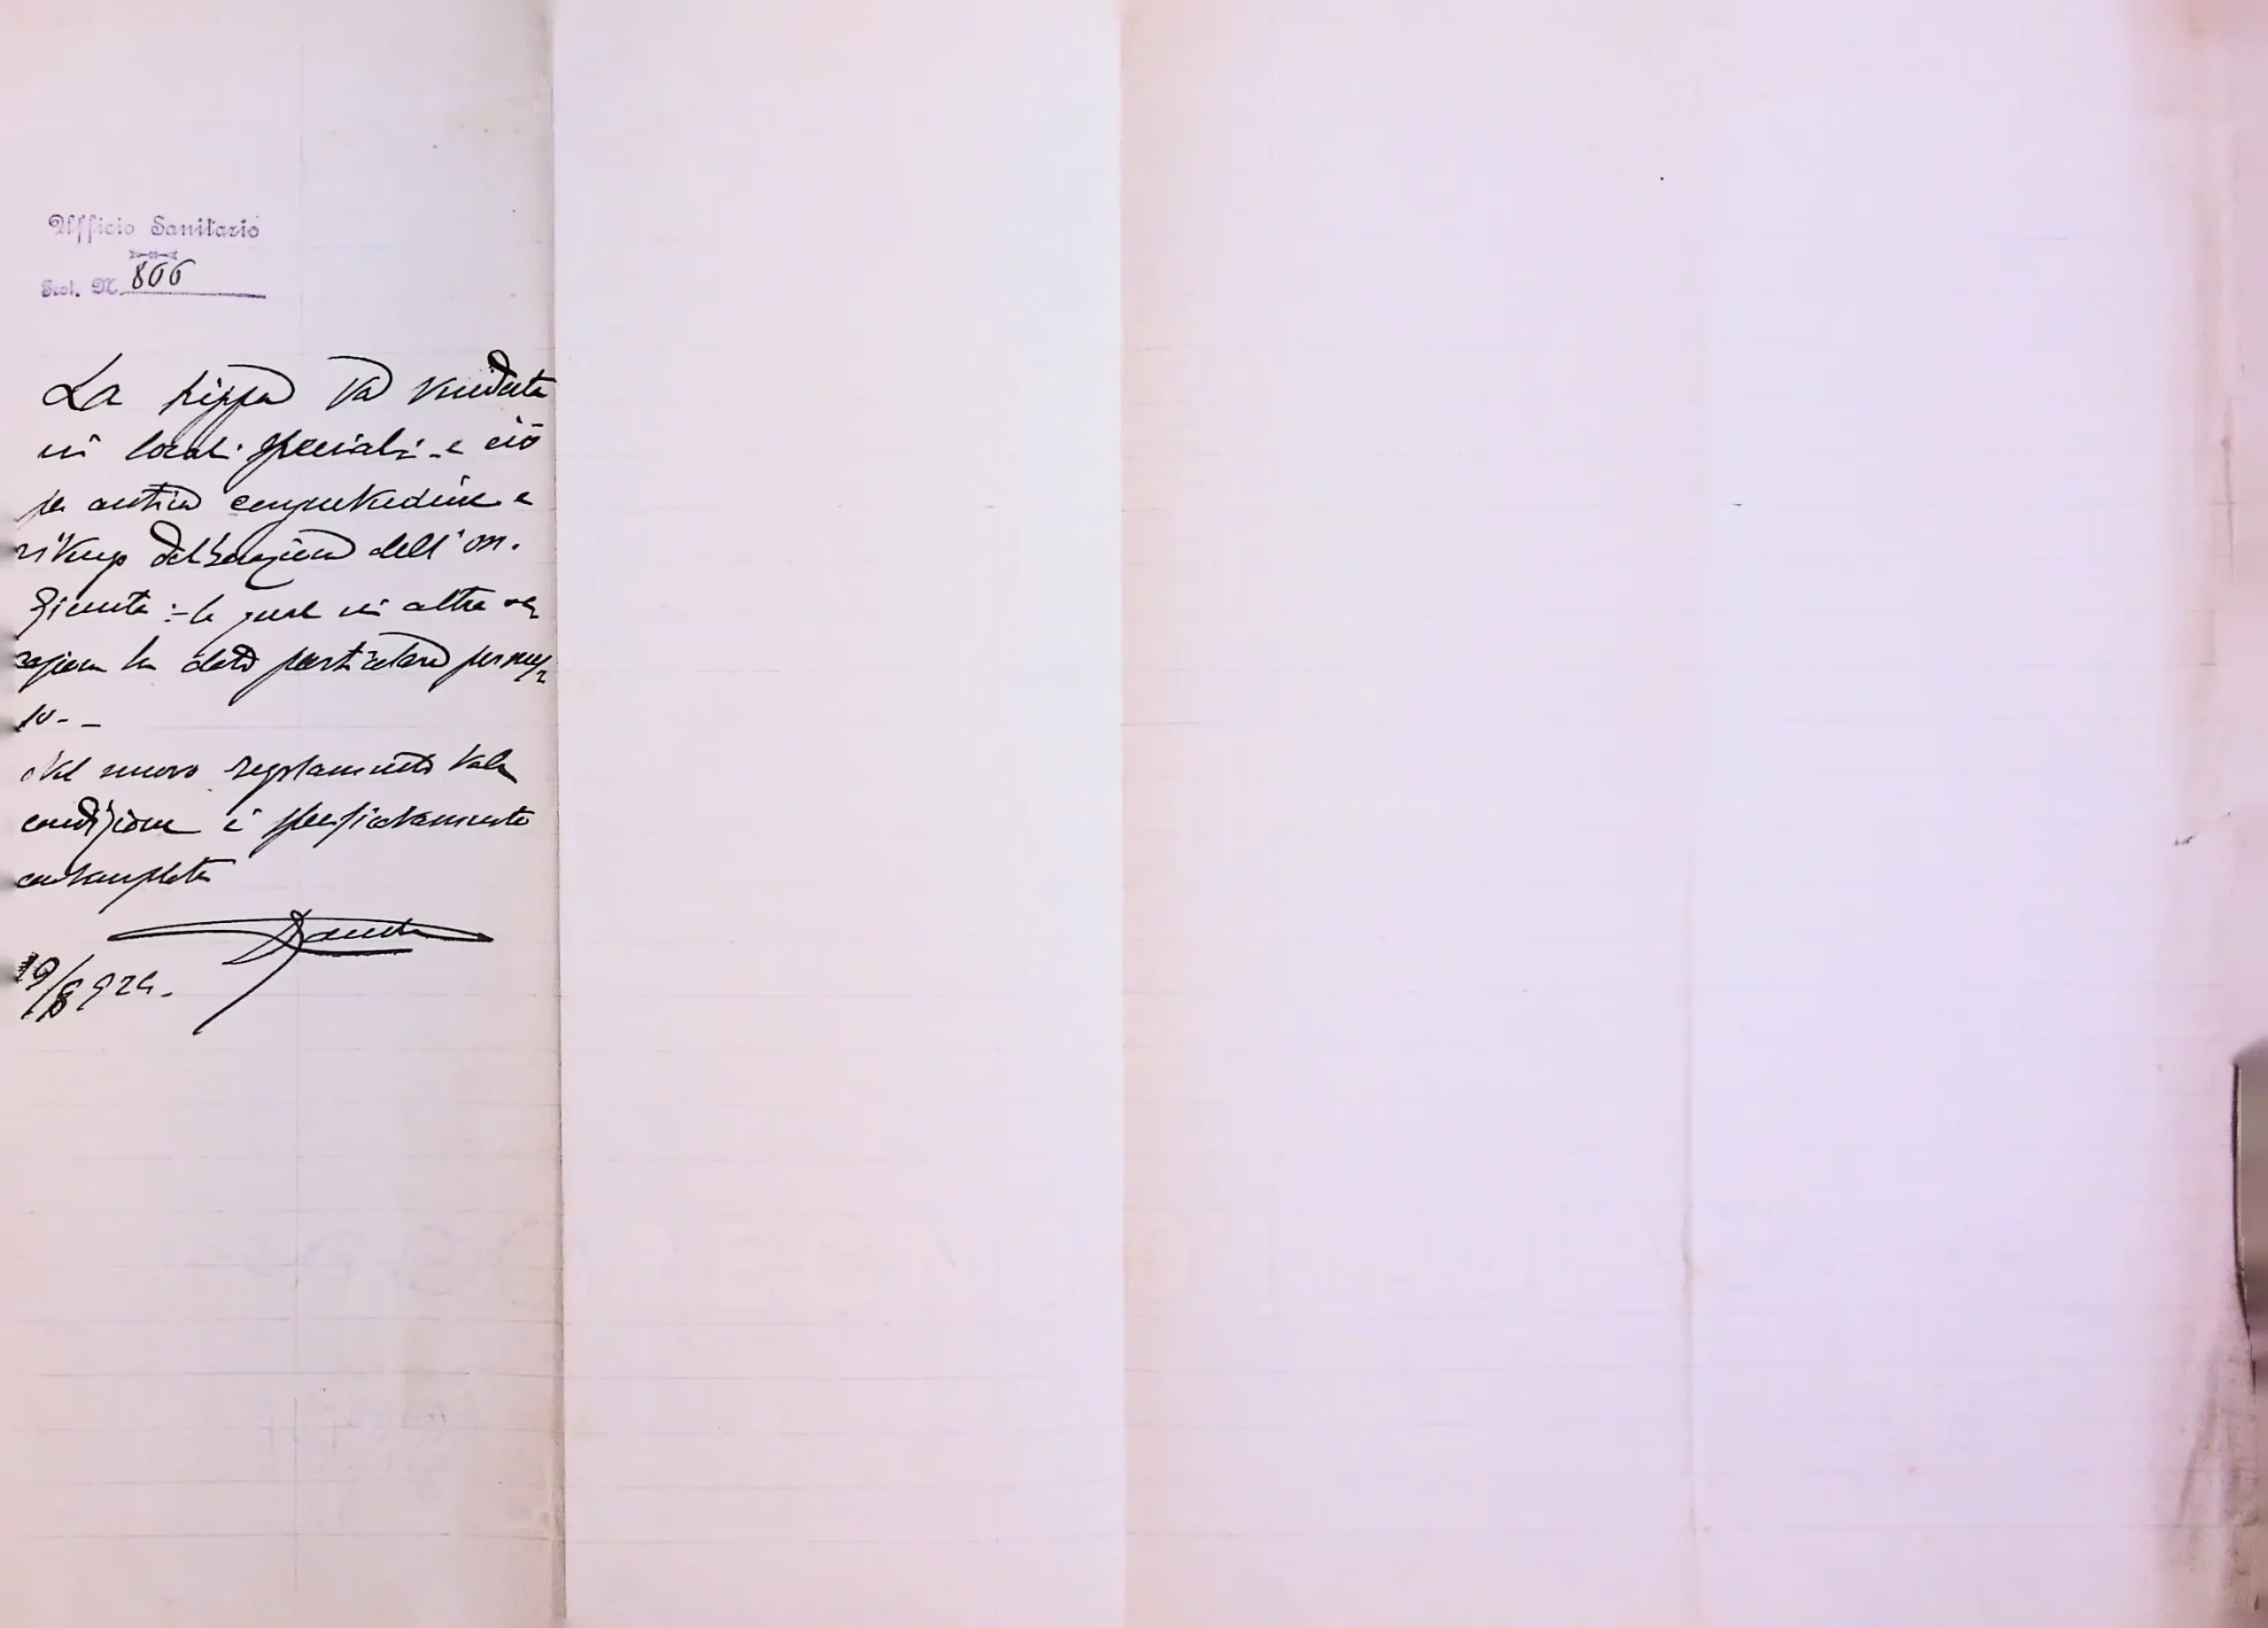 Ufficio Sanitario
Prot. N. 806
La trippa va venduta
in locali speciali - e ciò
per antica consuetudine e
deliberazione dell'on.
Giunta :- la quale in altra oc
casione ha dato particolare permes
so. -
Nel nuovo regolamento tale
condizione è
contemplata
19/8 924.